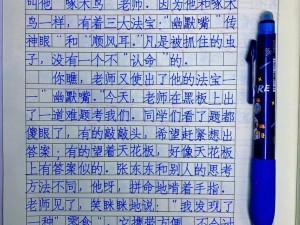 叫他"啄木鸟"老师.因为他和啄木
鸟一样,有着三大法宝:"幽默嘴""传
神眼"和"顺风耳".凡是被抓住的虫
子,没有一个不"认命"的.
你瞧,老师又使出了他的法宝一
一"幽默嘴".今天,老师在黑板上出
了一道难题考我们.同学们看了题都
傻眼了,有的敲敲头,希望赶紧想出
答案;有的望着天花板,好像天花板
上有答案似的.张东东和别人的思考
方法不同,他呀,拼命地啃着手指.
老师见了,笑眯眯地说:"我发现了
一种"零食",它携带方便,不会过
RE